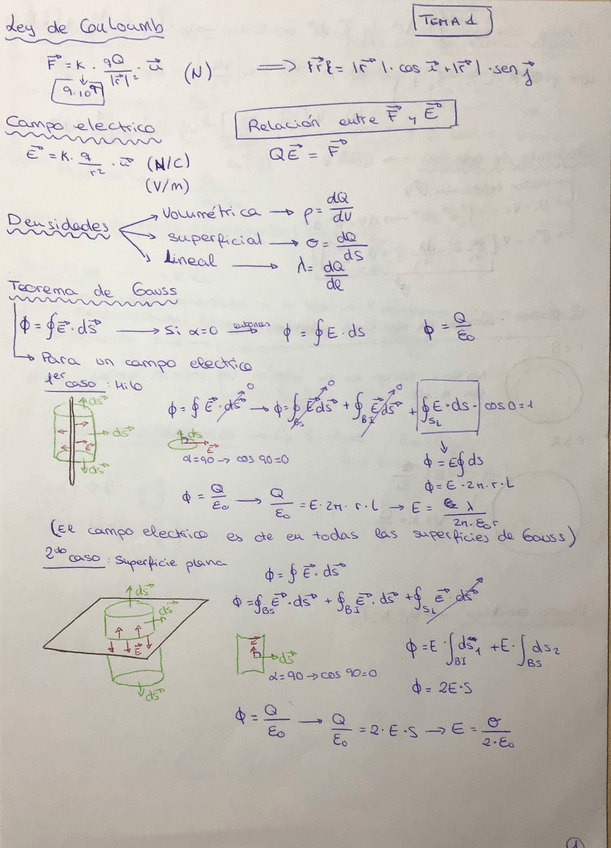 TEMA 1
Ley de Couloumb
F⃗ = K · qQ/|r⃗|² · u⃗ (N) ⟹ |r⃗| = |r⃗| · cos i⃗ + |r⃗| · sen j⃗
9·10⁹
Campo electrico
Relación entre F⃗ y E⃗
E⃗ = K · q/r² · u⃗ (N/C)
QE⃗ = F⃗
(V/m)
Densidades
volumétrica → ρ = dQ/dV
superficial → σ = dQ/ds
lineal → λ = dQ/dl
Teorema de Gauss
ϕ = ∮E⃗ · ds⃗ → Si α=0 → ϕ = ∮E · ds ϕ = Q/ε₀
→ Para un campo electrico
1er caso : Hilo
ds⃗
ds⃗
E⃗
ds⃗
ϕ = ∮ E⃗ · ds⃗ → ϕ = ∮BS E⃗ds⃗ 0 + ∮BI E⃗ds⃗ 0 + ∮SL E · ds · cos 0 = 1
ds
E⃗
α=90 → cos 90=0
ϕ = E∮ds
ϕ = E · 2π · r · L
ϕ = Q/ε₀ → Q/ε₀ = E · 2π · r · L → E = λ/2π · ε₀ r
(El campo electrico es de en todas las superficies de Gauss)
2do caso : Superficie plana
ϕ = ∮ E⃗ · ds⃗
ds⃗
ds⃗
E⃗
ds⃗
ϕ = ∮BS E⃗ · ds⃗ + ∮BI E⃗ · ds⃗ + ∮SL E⃗ · ds⃗
E⃗
ds⃗
α=90 → cos 90=0
ϕ = E · ∫BI ds₁ + E · ∫BS ds₂
ϕ = 2E · S
ϕ = Q/ε₀ → Q/ε₀ = 2 · E · S → E = σ/2 · ε₀
1